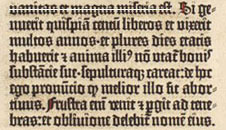 vanitas et magna miseria est. Si genuerit
nuerit quispiā centū liberos et vixerit
multos annos, et plures dies etatis
habuerit, et anima illi⁹ nō vtať bonis
substātie sue, sepulturaq; careat: de hoc
ego pronūcio q̄ melior illo sit aborciuus.
Frustra enī venit et pergit ad tenebras:
et obliuione delebit᷑ nomē eius.